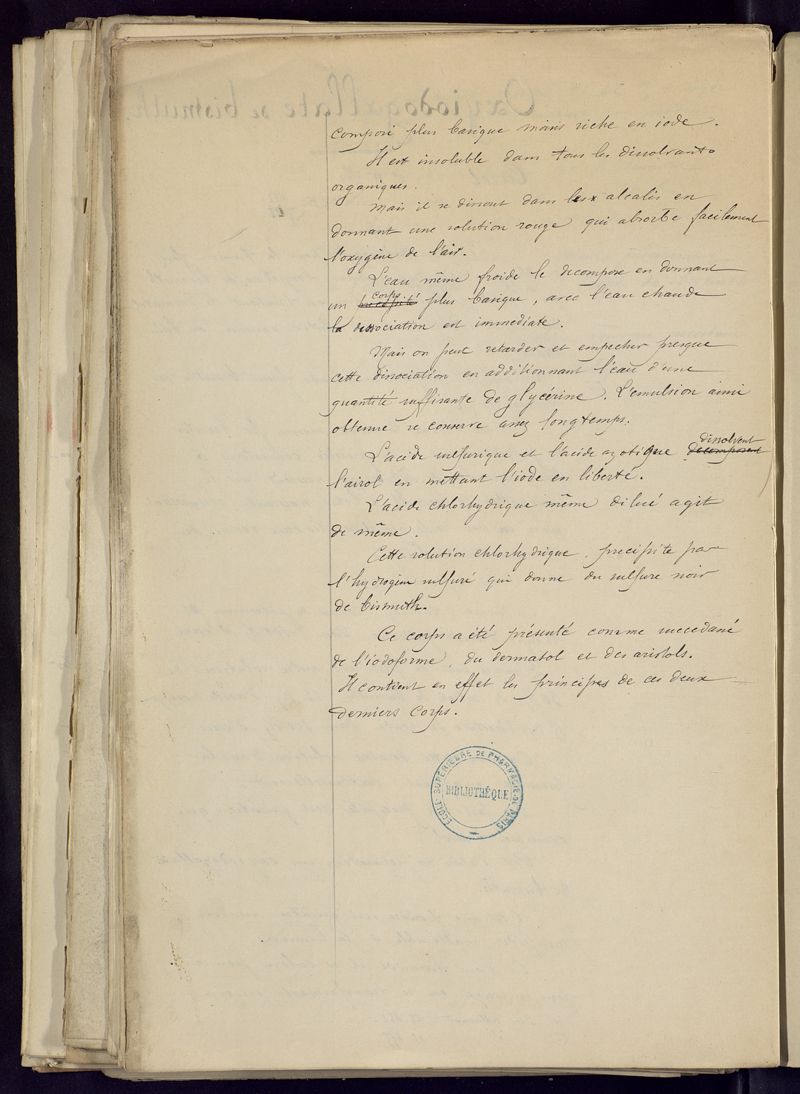 composé plus basique moins riche en iode.
Il est insoluble dans tous les dissolvants
organiques.
Mais il se dissout dans les alcalis en
donnant une solution rouge qui absorbe facilement
l'oxygène de l'air.
L'eau même froide le decompose en donnant
corps
un précipité plus basique, avec l'eau chaude
la dissociation est immediate.
Mais on peut retarder et empecher presque
cette dissociation en additionnant l'eau d'une
quantité suffisante de glycérine. L'emulsion ainsi
obtenue se conserve assez longtemps.
dissolvent
L'acide sulfurique et l'acide azotique decomposent
l'airol en mettant l'iode en liberté.
L'acide chlorhydrique même dilué agit
de même.
Cette solution chlorhydrique, precipite par
l'hydrogène sulfuré qui donne du sulfure noir
de bismuth.
Ce corps a été présenté comme succedané
de l'iodoforme, du dermatol et des aristols.
Il contient en effet les principes de ces deux
derniers corps.
ECOLE SUPÉRIEURE DE PHARMACIE DE PARIS
BIBLIOTHÉQUE
Oxyiodogallate de bismuth